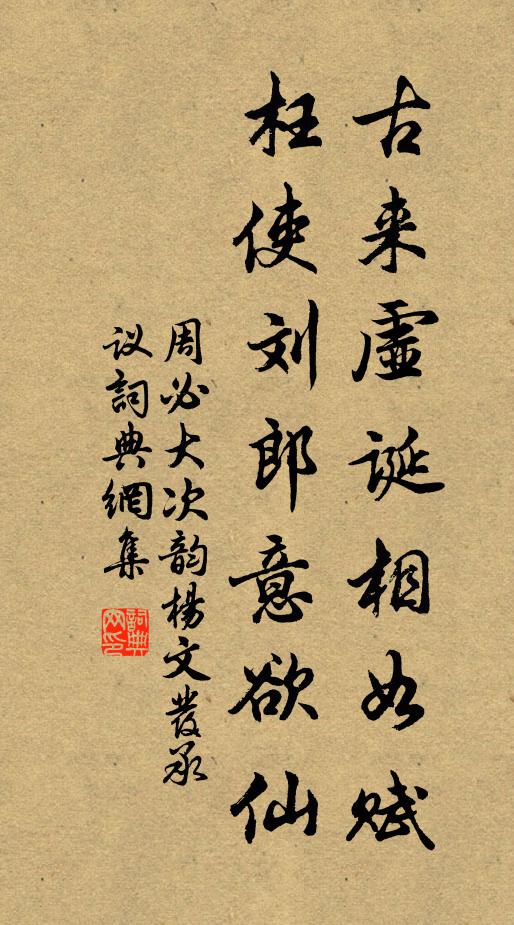 古来虚诞相如赋
枉使刘郎意欲仙
周必大次韵杨文发承
议词典網集
詞典
网印